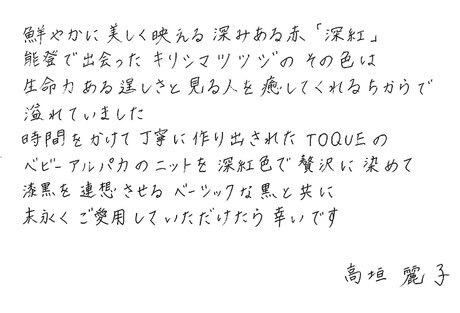 鮮やかに美しく映える深みある赤「深紅」
能登で出会ったキリシマツツジのその色は
生命力ある逞しさと見る人を癒してくれる力からで
溢れていました
時間をかけて丁寧に作り出されたTOQUEの
ベビーアルパカのニットを深紅色で贅沢に染めて
漆黒を連想させるベーシックな黒と共に
末永くご愛用していただけたら幸いです
高垣麗子